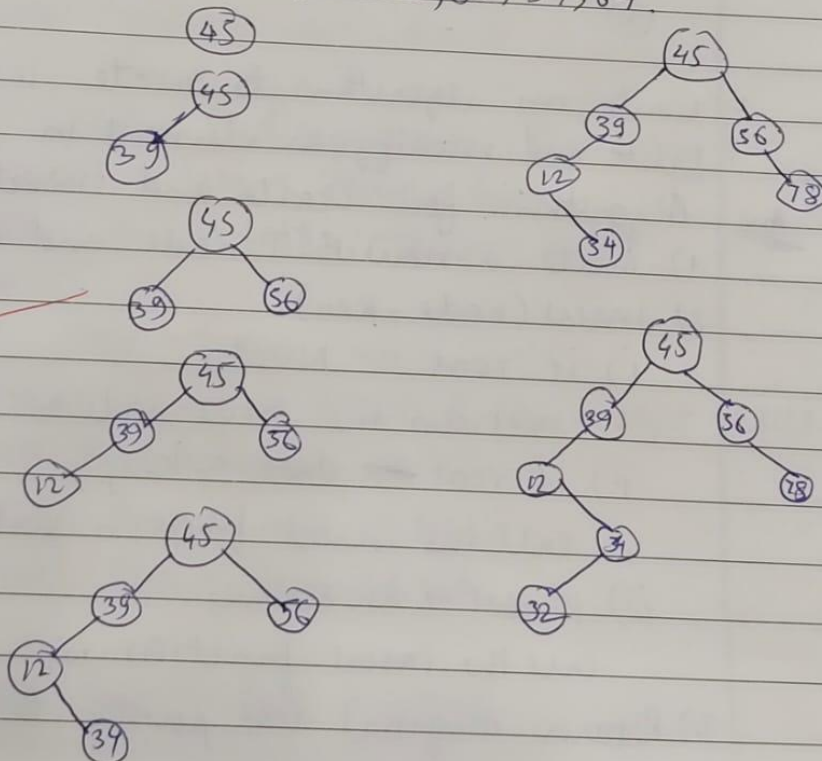 45
45
39
45
39 56
45
39 56
12
45
39 56
12
39
45
39 56
12 78
34
45
39 56
12 78
34
32